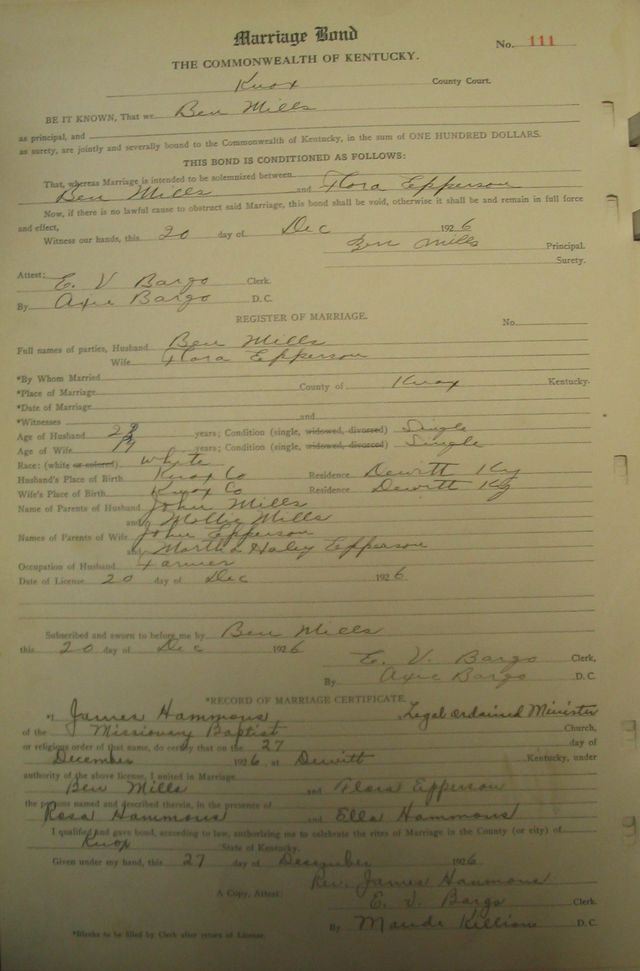 Marriage Bond
No. 111
THE COMMONWEALTH OF KENTUCKY.
Knox County Court.
BE IT KNOWN, That we Ben Mills
as principal, and
as surety, are jointly and severally bound to the Commonwealth of Kentucky, in the sum of ONE HUNDRED DOLLARS.
THIS BOND IS CONDITIONED AS FOLLOWS:
That, whereas Marriage is intended to be solemnized between
Ben Mills and Flora Epperson
Now, if there is no lawful cause to obstruct said Marriage, this bond shall be void, otherwise it shall be and remain in full force
and effect,
Witness our hands, this 20 day of Dec 1926
Ben Mills Principal.
Surety.
Attest: E. V Bargo Clerk.
By Axie Bargo D. C.
REGISTER OF MARRIAGE.
No.
Full names of parties, Husband Ben Mills
Wife Flora Epperson
*By Whom Married
*Place of Marriage County of Knox Kentucky.
*Date of Marriage
*Witnesses and
Age of Husband years; Condition (single, widowed, divorced) Single
Age of Wife years; Condition (single, widowed, divorced) Single
Race: (white or colored) white
Husband's Place of Birth Knox Co Residence Dewitt Ky
Wife's Place of Birth Knox Co Residence Dewitt Ky
Name of Parents of Husband John Mills
and Mollie Mills
Names of Parents of Wife John Epperson
and Martha Haley Epperson
Occupation of Husband Farmer
Date of License 20 day of Dec 1926
Subscribed and sworn to before me by Ben Mills
this 20 day of Dec 1926
E. V. Bargo Clerk,
By Axie Bargo D. C.
*RECORD OF MARRIAGE CERTIFICATE.
*I James Hammons, Legal ordained Minister
of the Missionary Baptist Church,
or religious order of that name, do certify that on the 27 day of
December 1926, at Dewitt Kentucky, under
authority of the above license, I united in Marriage
Ben Mills and Flora Epperson
the persons named and described therein, in the presence of
Rosa Hammons and Ella Hammons
I qualified and gave bond, according to law, authorizing me to celebrate the rites of Marriage in the County (or city) of
Knox State of Kentucky.
Given under my hand, this 27 day of December 1926
Rev. James Hammons
A Copy, Attest: E. V. Bargo Clerk.
By Maude Killion D. C.
*Blanks to be filled by Clerk after return of License.